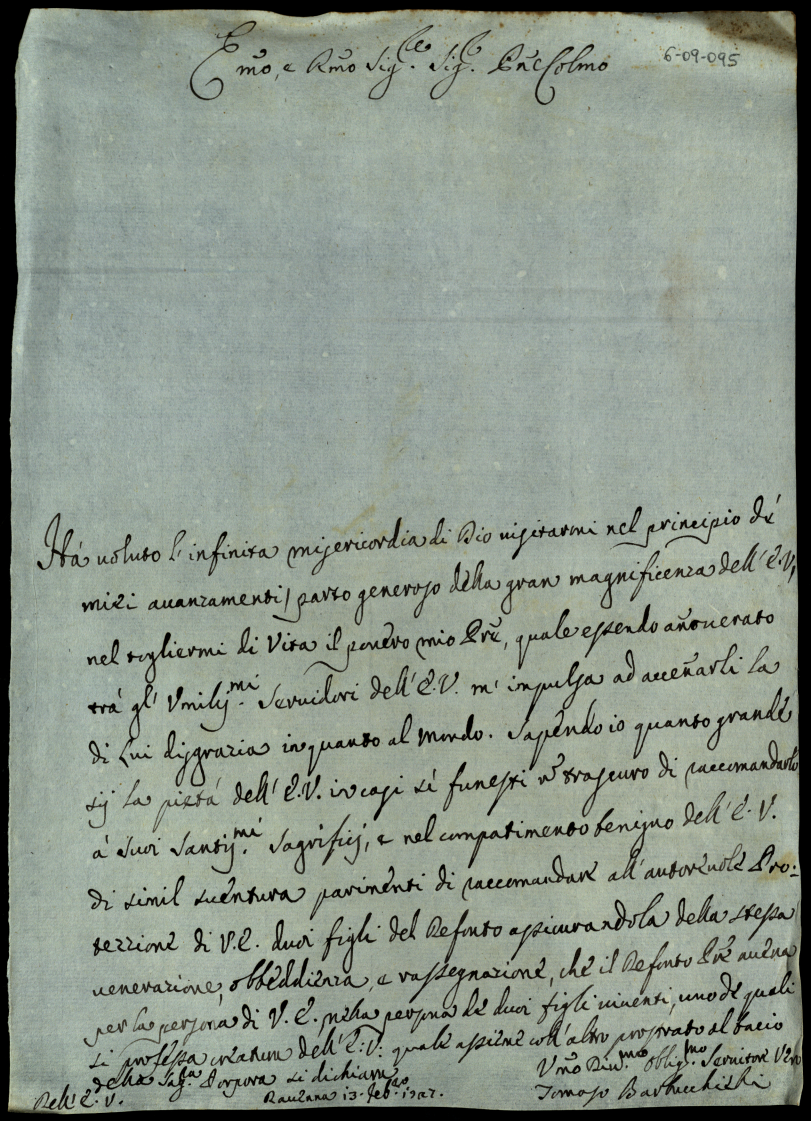 Emo, e Rmo Sig.re Sig.r Prn Colmo
6-09-095
Há voluto l'infinita misericordia di Dio visitarmi nel principio dé
miei avanzamenti, parto generoso della gran magnificenza dell'E.V,
nel togliermi di Vita il povero mio Pre, quale essendo añoverato
trá gl'Vmilis.mi Servidori dell'E.V. m'impulsa ad acceñarli la
di Lui disgrazia in quanto al Mondo. Sapendo io quanto grande
sij la pietá dell'E.V. in casi sí funesti ñ trascuro di raccomandarlo
á suoi Santis.mi Sagrificj, e nel compatimento benigno dell'E.V.
di simil sventura parimenti di raccomandare all'autorevole Pro:
tezzione di V.E. duoi figli del Defonto assicurandola della stessa
venerazione, obbeddienza, e rassegnazione, che il Defonto Pre aueua
per la persona di V.E. nella persona dé duoi figli viventi, uno dé quali
si professa creatura dell'E:V: quale assieme coll'altro prostrato al bacio
della Sag.ta Porpora si dichiara
Dell'E.V.
Ravenna 13. feb.ro
Vmo Diu.mo Oblig.mo Servitor Vero
Tomaso